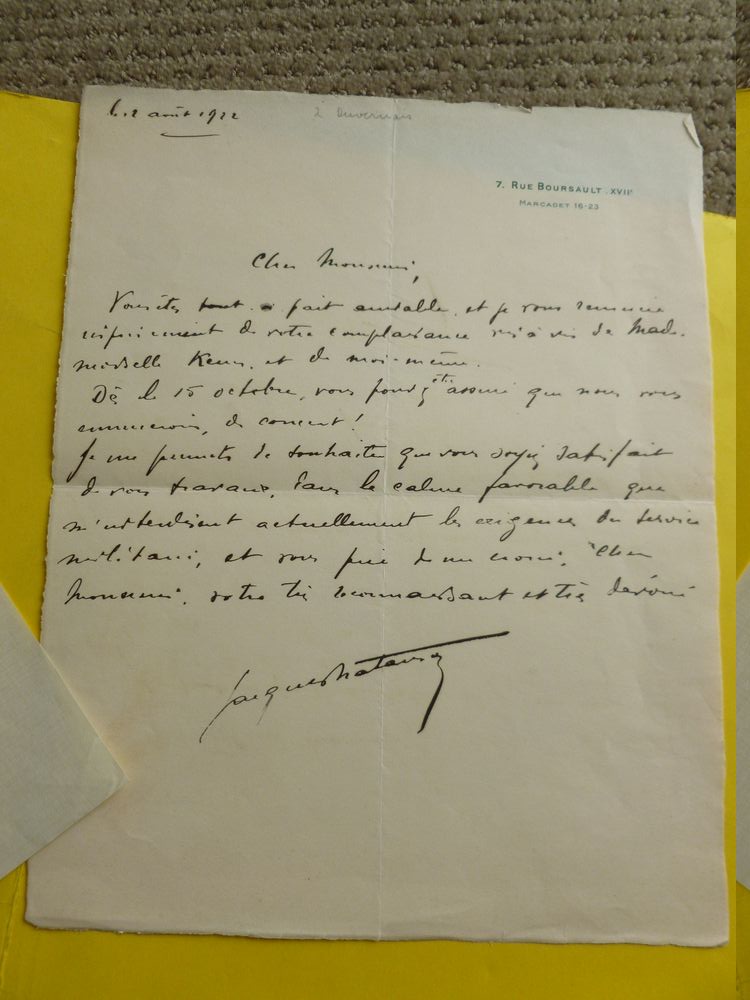 le 2 août 1922
à Duvernois
7. RUE BOURSAULT. XVIIᵉ
MARCADET 16-23
Cher Monsieur,
Vous êtes tout à fait aimable, et je vous remercie
infiniment de votre complaisance vis à vis de Made-
moiselle Kerm, et de moi-même.
Dès le 15 octobre, vous pouvez être assuré que nous vous
, de concert!
Je me permets de souhaiter que vous soyez satisfait
de vos travaux, dans le calme favorable que
m'interdisent actuellement les exigences du service
militaire, et vous prie de me croire, Cher
Monsieur, votre très reconnaissant et très dévoué
Jacques Natanson